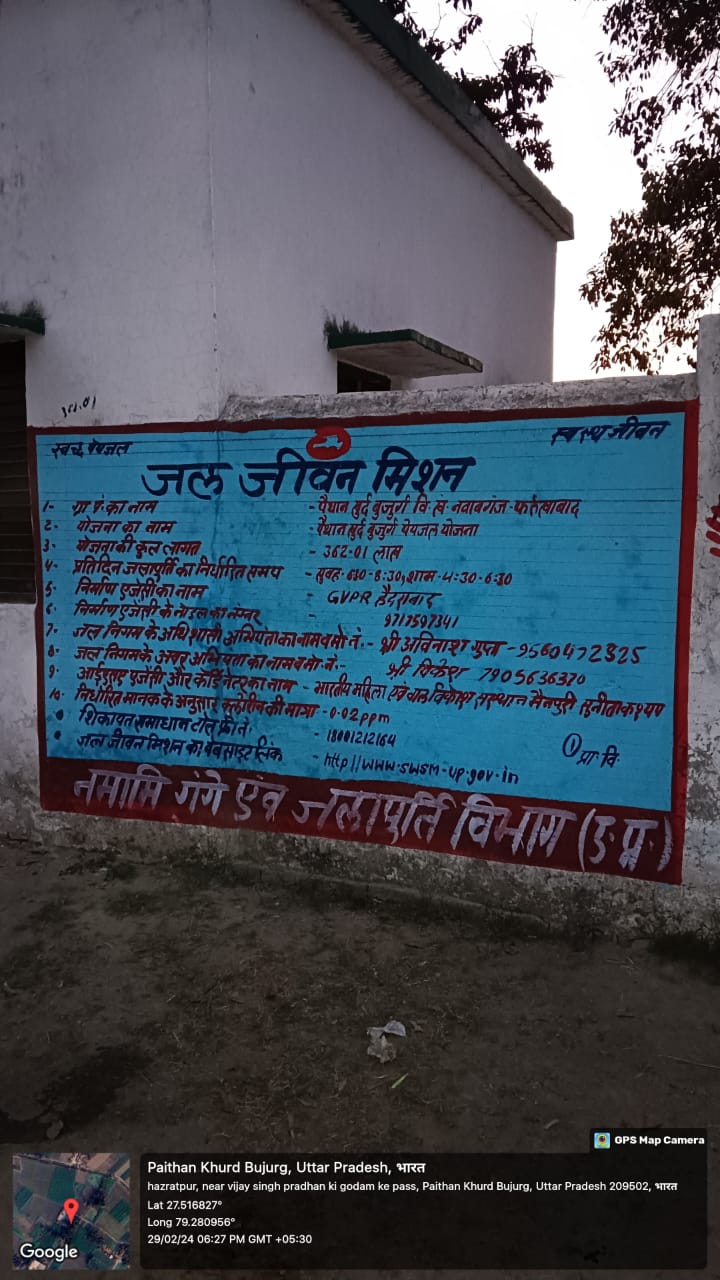 स्वच्छ पेयजल
स्वस्थ जीवन
जल जीवन मिशन
1- ग्रा॰पं॰का नाम - पैथान खुर्द बुजुर्ग वि॰ख॰ नवाबगंज फर्रुखाबाद
2- योजना का नाम - पैथान खुर्द बुजुर्ग पेयजल योजना
3- योजना की कुल लागत - 362.01 लाख
4- प्रतिदिन जलापूर्ति का निर्धारित समय - सुबह-6:30-8:30,शाम-4:30-6:30
5- निर्माण एजेंसी का नाम - GVPR हैदराबाद
6- निर्माण एजेंसी के नोडल का नम्बर - 9717597341
7- जल निगम के अधिशासी अभियंता का नाम व मो॰नं.- श्री अविनाश गुप्त - 9560472325
8- जल निगम के अवर अभियंता का नाम व मो॰नं.- श्री विकेश 7905636370
9- आईएसए एजेंसी और कोर्डिनेटर का नाम - भारतीय महिला एवं बाल विकास संस्थान मैनपुरी सुनीता कश्यप
10- निर्धारित मानक के अनुसार क्लोरीन की मात्रा - 0.02 ppm
• शिकायत समाधान टोल फ्री नं. - 18001212164
• जल जीवन मिशन का वेबसाइट लिंक - http//www.swsm-up.gov.in
① प्रा॰वि॰
नमामि गंगे एंव जलापुर्ति विभाग (उ.प्र.)
GPS Map Camera
Paithan Khurd Bujurg, Uttar Pradesh, भारत
hazratpur, near vijay singh pradhan ki godam ke pass, Paithan Khurd Bujurg, Uttar Pradesh 209502, भारत
Lat 27.516827°
Long 79.280956°
29/02/24 06:27 PM GMT +05:30
Google